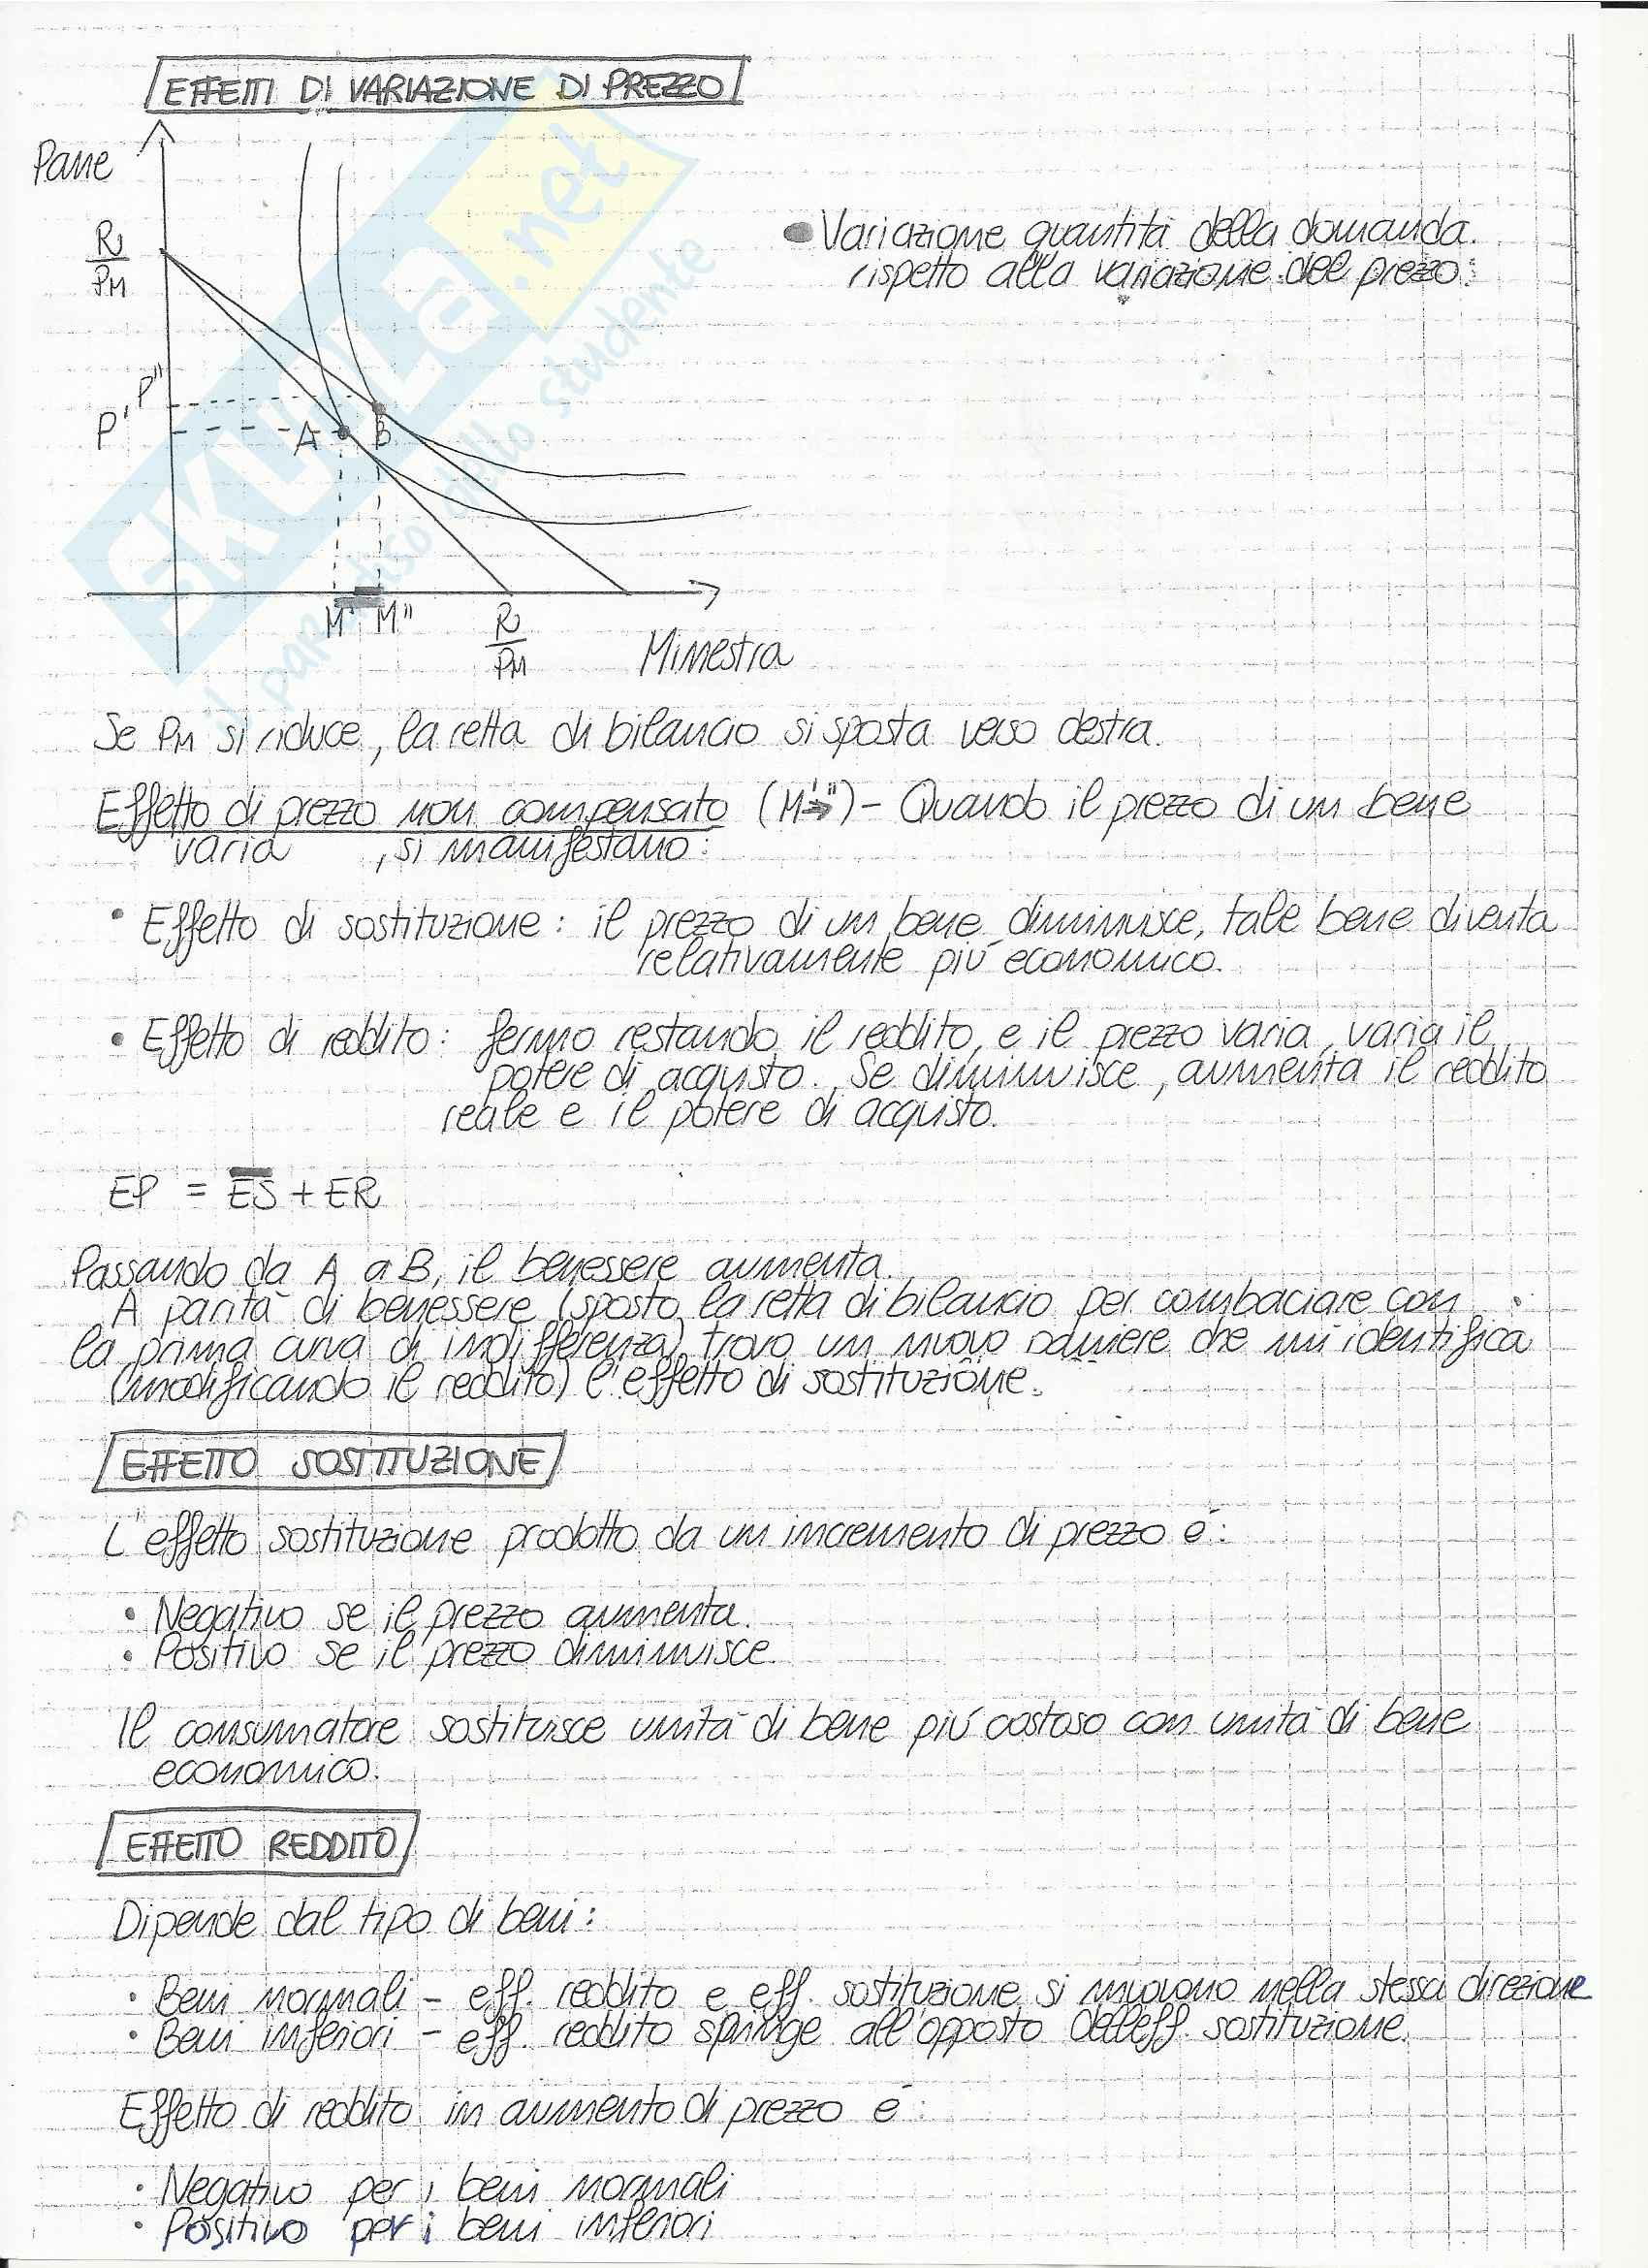 EFFETTI DI VARIAZIONE DI PREZZO
Pane
R
PM
P''
P'
A
B
M'
M''
R
PM
Minestra
• Variazione quantità della domanda.
rispetto alla variazione del prezzo:
SKUOLA.net
il paradiso dello studente
Se PM si riduce, la retta di bilancio si sposta verso destra.
Effetto di prezzo non compensato (M'→'') - Quando il prezzo di un bene
varia , si manifestano:
• Effetto di sostituzione: il prezzo di un bene diminuisce, tale bene diventa
relativamente più economico.
• Effetto di reddito: fermo restando il reddito, e il prezzo varia, varia il
potere di acquisto. Se diminuisce, aumenta il reddito
reale e il potere di acquisto.
EP = ES + ER
Passando da A a B, il benessere aumenta.
A parità di benessere (sposto la retta di bilancio per combaciare con
la prima curva di indifferenza) trovo un nuovo paniere che mi identifica
(modificando il reddito) l'effetto di sostituzione.
EFFETTO SOSTITUZIONE
L'effetto sostituzione prodotto da un incremento di prezzo è:
• Negativo se il prezzo aumenta.
• Positivo se il prezzo diminuisce.
Il consumatore sostituisce unità di bene più costoso con unità di bene
economico.
EFFETTO REDDITO
Dipende dal tipo di beni:
• Beni normali - eff. reddito e eff. sostituzione si muovono nella stessa direzione
• Beni inferiori - eff. reddito spinge all'opposto dell'eff. sostituzione.
Effetto di reddito in aumento di prezzo è:
• Negativo per i beni normali
• Positivo per i beni inferiori